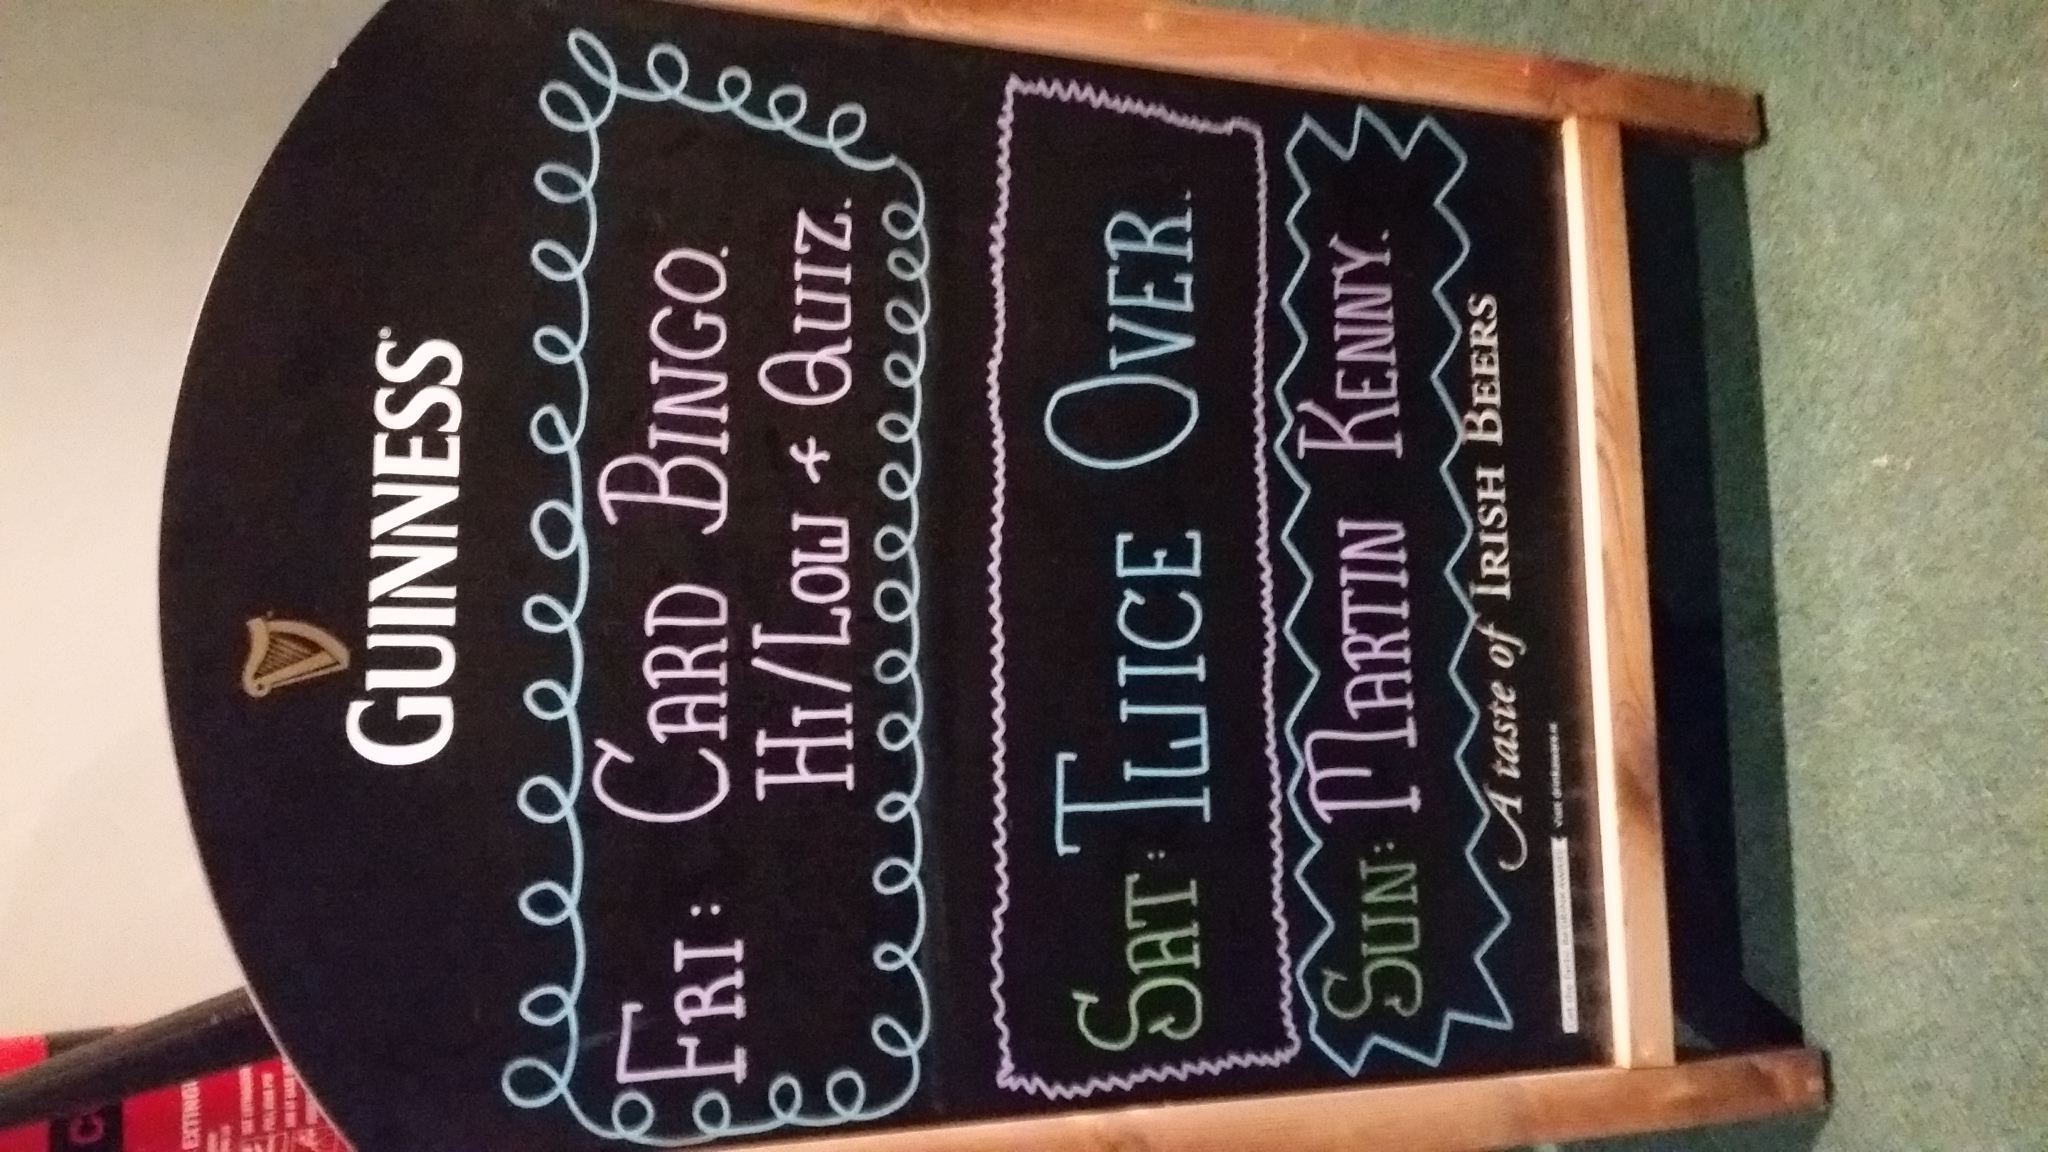 GUINNESS
FRI: CARD BINGO.
HI/LOW & QUIZ.
SAT: TWICE OVER.
SUN: MARTIN KENNY.
A taste of IRISH BEERS
Visit drinkaware.ie
EXTINGU